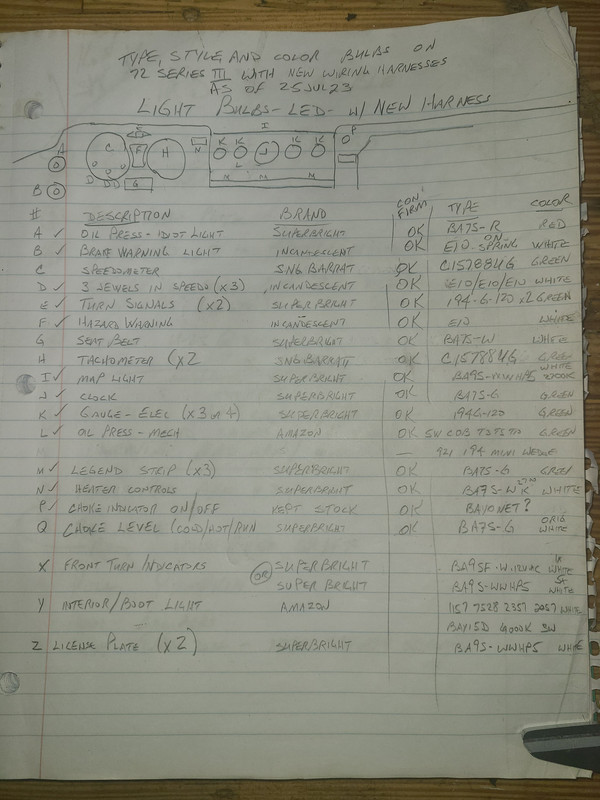 TYPE, STYLE, AND COLOR BULBS ON
72 SERIES III WITH NEW WIRING HARNESSES
AS OF 25 JUL 23
LIGHT BULBS - LED - W/ NEW HARNESS
A B C D D D E F G H I J K K K K L M M M N P
# DESCRIPTION BRAND CONFIRM TYPE COLOR
A ✓ OIL PRESS - IDIOT LIGHT SUPERBRIGHT OK BA7S-R RED
B ✓ BRAKE WARNING LIGHT INCANDESCENT OK E10 ON SPRING WHITE
C SPEEDOMETER SNG BARRAT OK C15788UG GREEN
D ✓ 3 JEWELS IN SPEEDO (x3) INCANDESCENT OK E10/E10/E10 WHITE
E ✓ TURN SIGNALS (x2) SUPERBRIGHT OK 194-G-120 x2 GREEN
F ✓ HAZARD WARNING INCANDESCENT OK E10 WHITE
G SEAT BELT SUPERBRIGHT OK BA7S-W WHITE
H TACHOMETER (x2 SNG BARATT OK C15788UG GREEN
I ✓ MAP LIGHT SUPERBRIGHT OK BA9S-WWHP5 WHITE
J ✓ CLOCK SUPERBRIGHT OK BA7S-G GREEN
K ✓ GAUGE - ELEC (x3 of 4) SUPERBRIGHT OK 194G-120 GREEN
L ✓ OIL PRESS - MECH AMAZON OK 5W COB GREEN
— 921 194 MINI WEDGE
M ✓ LEGEND STRIP (x3) SUPERBRIGHT OK BA7S-G GREEN
N ✓ HEATER CONTROLS SUPERBRIGHT OK WHITE
P ✓ CHOKE INDICATOR ON/OFF KEPT STOCK OK BAYONET?
Q CHOKE LEVEL (COLD/HOT/RUN SUPERBRIGHT OK BA7S-G ORIG WHITE
X FRONT TURN INDICATORS OR SUPERBRIGHT BA9SF-W-12VAC WHITE
SUPERBRIGHT BA9S-WWHP5 WHITE
Y INTERIOR/BOOT LIGHT AMAZON 1157 7528 2357 2057 WHITE
BAY15D 6000K 3W
Z LICENSE PLATE (x2) SUPERBRIGHT BA9S-WWHP5 WHITE